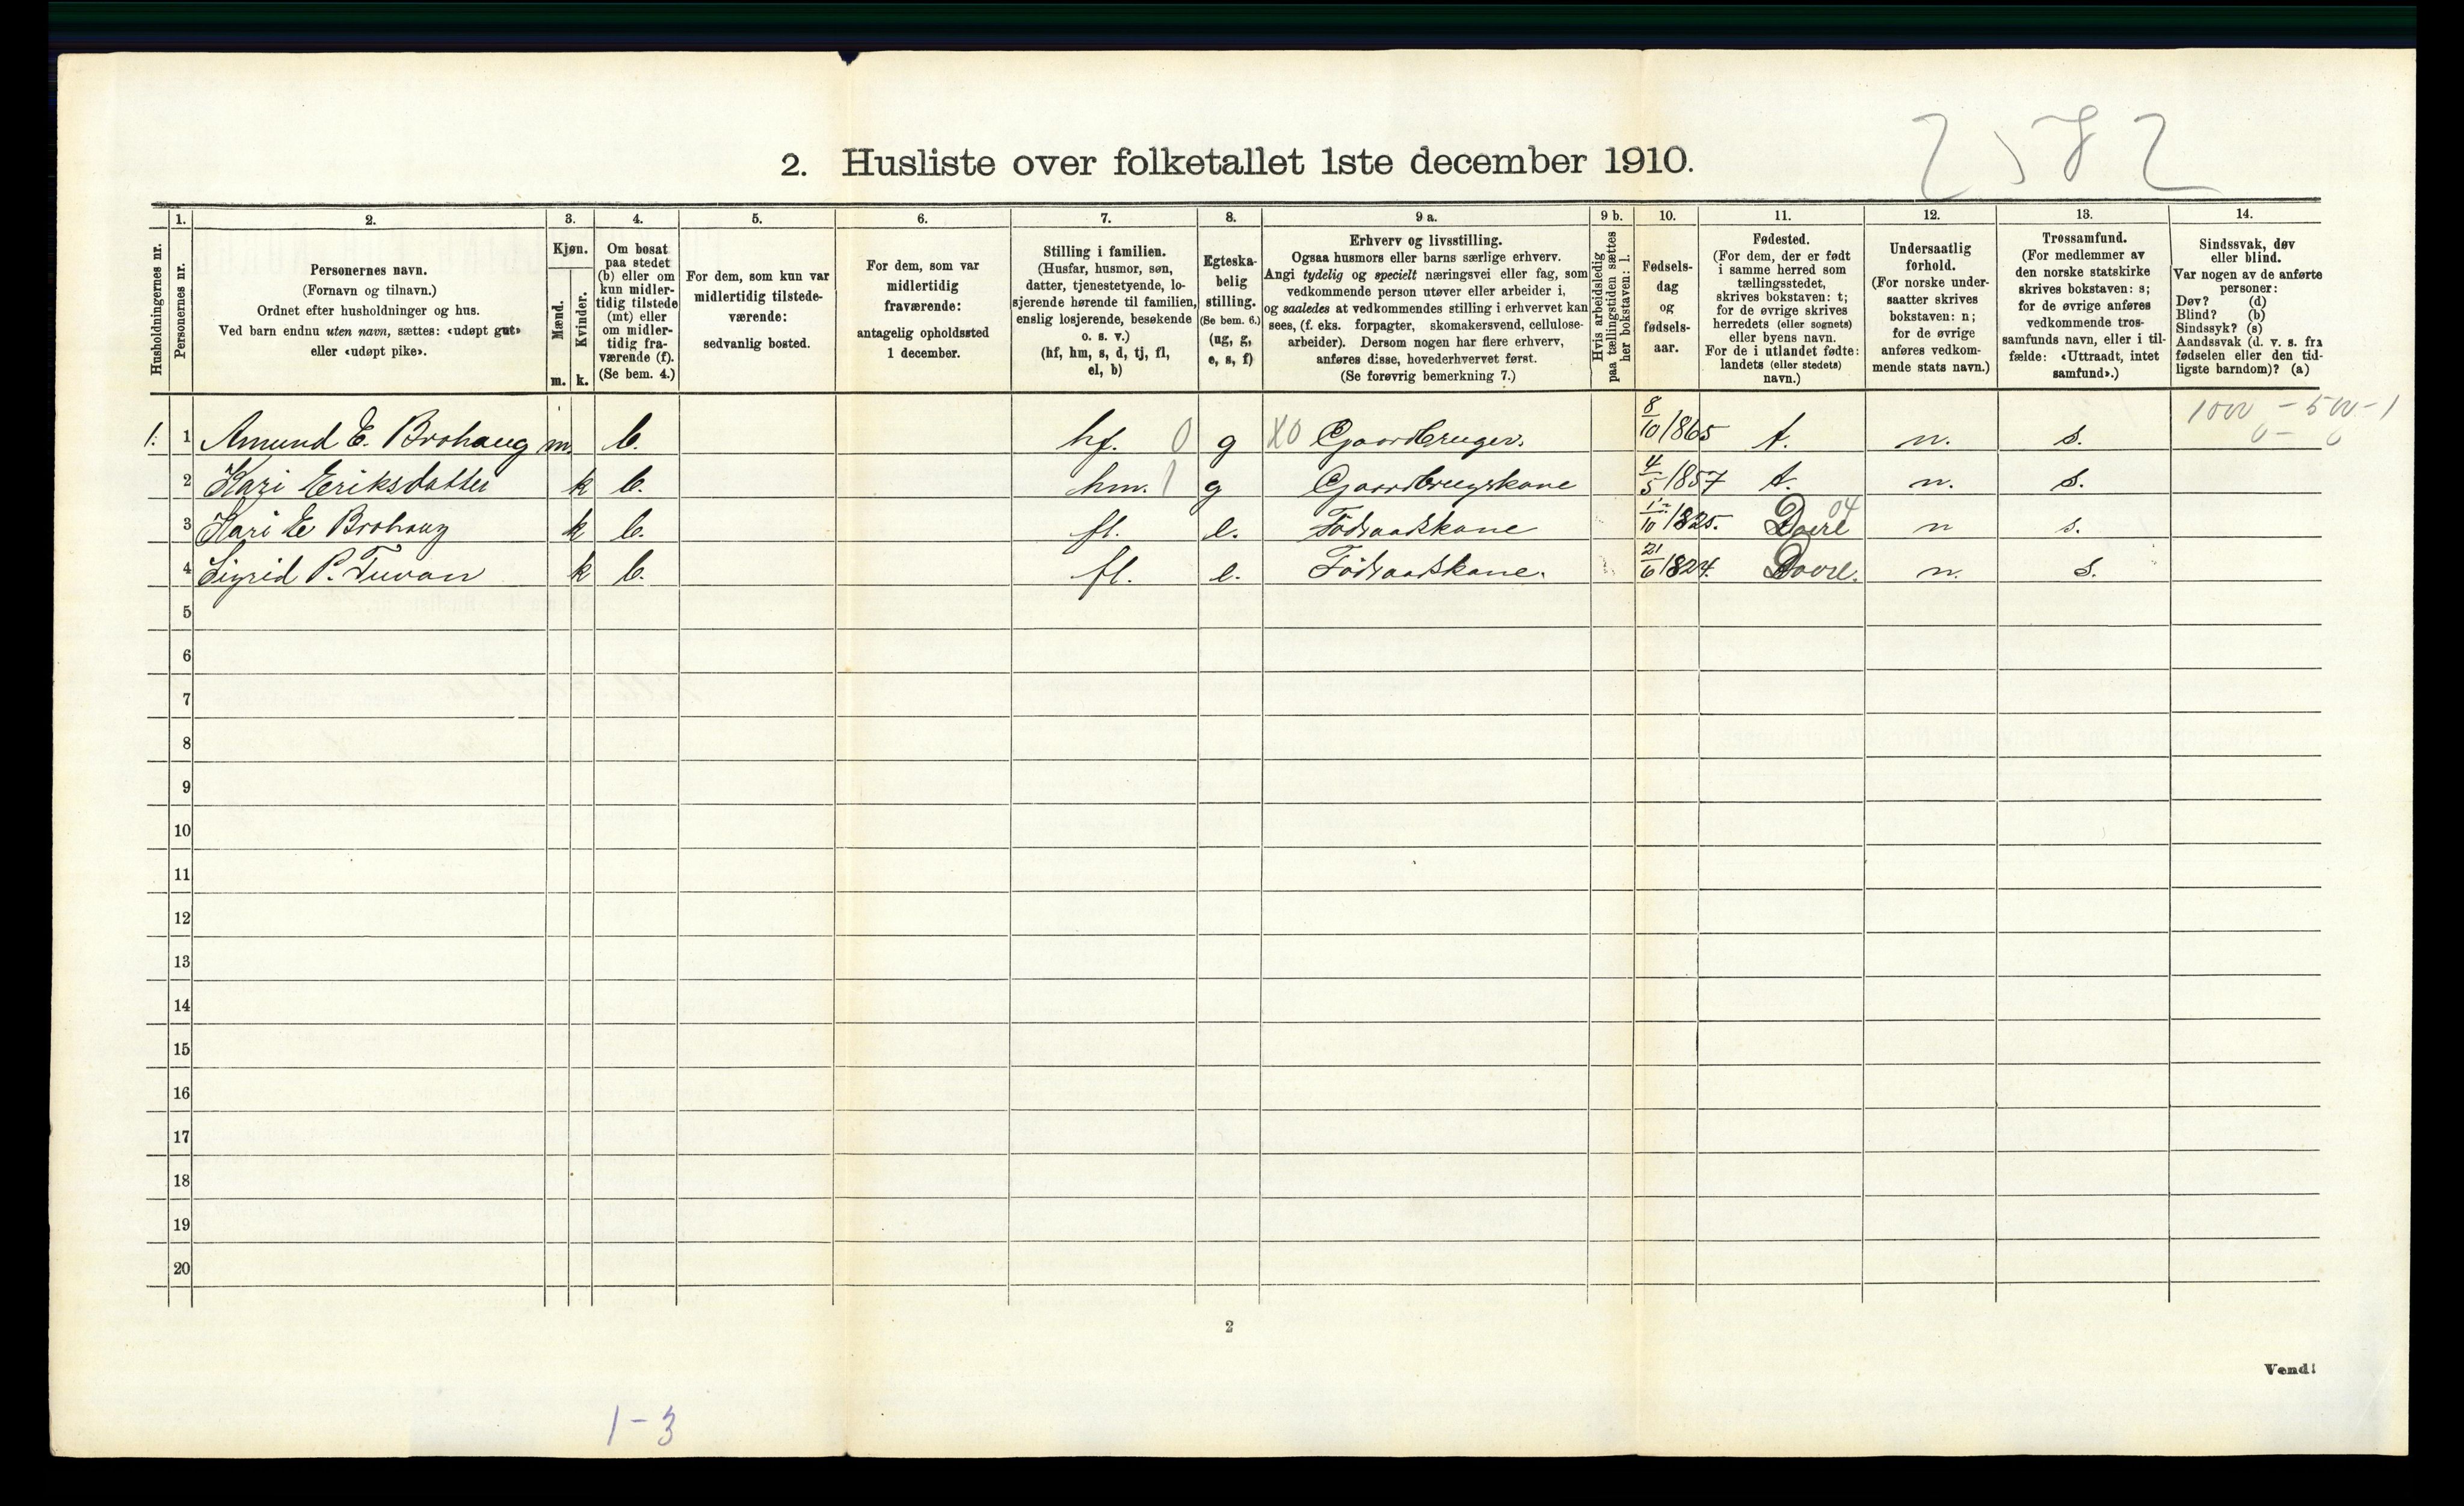 2582
2. Husliste over folketallet 1ste december 1910.
Husholdningernes nr.
1. Personernes nr.
2. Personernes navn.
(Fornavn og tilnavn.)
Ordnet efter husholdninger og hus.
Ved barn endnu uten navn, sættes: «udøpt gut»
eller «udøpt pike».
3. Kjøn.
Mænd. m.
Kvinder. k.
4. Om bosat
paa stedet
(b) eller om
kun midler-
tidig tilstede
(mt) eller
om midler-
tidig fra-
værende (f).
(Se bem. 4.)
5. For dem, som kun var
midlertidig tilstede-
værende:
sedvanlig bosted.
6. For dem, som var
midlertidig
fraværende:
antagelig opholdssted
1 december.
7. Stilling i familien.
(Husfar, husmor, søn,
datter, tjenestetyende, lo-
sjerende hørende til familien,
enslig losjerende, besøkende
o. s. v.)
(hf, hm, s, d, tj, fl,
el, b)
8. Egteska-
belig
stilling.
(Se bem. 6.)
(ug, g,
e, s, f)
9 a. Erhverv og livsstilling.
Ogsaa husmors eller barns særlige erhverv.
Angi tydelig og specielt næringsvei eller fag, som
vedkommende person utøver eller arbeider i,
og saaledes at vedkommendes stilling i erhvervet kan
sees, (f. eks. forpagter, skomakersvend, cellulose-
arbeider). Dersom nogen har flere erhverv,
anføres disse, hovederhvervet først.
(Se forøvrig bemerkning 7.)
9 b. Hvis arbeidsledig
paa tællingstiden sættes
her bokstaven: l.
10. Fødsels-
dag
og
fødsels-
aar.
11. Fødested.
(For dem, der er født
i samme herred som
tællingsstedet,
skrives bokstaven: t;
for de øvrige skrives
herredets (eller sognets)
eller byens navn.
For de i utlandet fødte:
landets (eller stedets)
navn.)
12. Undersaatlig
forhold.
(For norske under-
saatter skrives
bokstaven: n;
for de øvrige
anføres vedkom-
mende stats navn.)
13. Trossamfund.
(For medlemmer av
den norske statskirke
skrives bokstaven: s;
for de øvrige anføres
vedkommende tros-
samfunds navn, eller i til-
fælde: «Uttraadt, intet
samfund».)
14. Sindssvak, døv
eller blind.
Var nogen av de anførte
personer:
Døv? (d)
Blind? (b)
Sindssyk? (s)
Aandssvak (d. v. s. fra
fødselen eller den tid-
ligste barndom)? (a)
1. 1 Amund E. Brohaug m. b. hf. 0 g X0 Gaardbruger. 8/10 1865 t. n. s.
2 Kari Eriksdatter k b. hm. 1 g Gaardbrugerkone 4/5 1857 t. n. s.
3 Kari E Brohaug k b. fl. e. Födraadskone /10 1825. Dovre 04 n s.
4 Sigrid P. Tuvan k b. fl. e. Födraadskone. 21/6 1824. Dovre. n. s.
5
6
7
8
9
10
11
12
13
14
15
16
17
18
19
20
2
Vend!
1-3